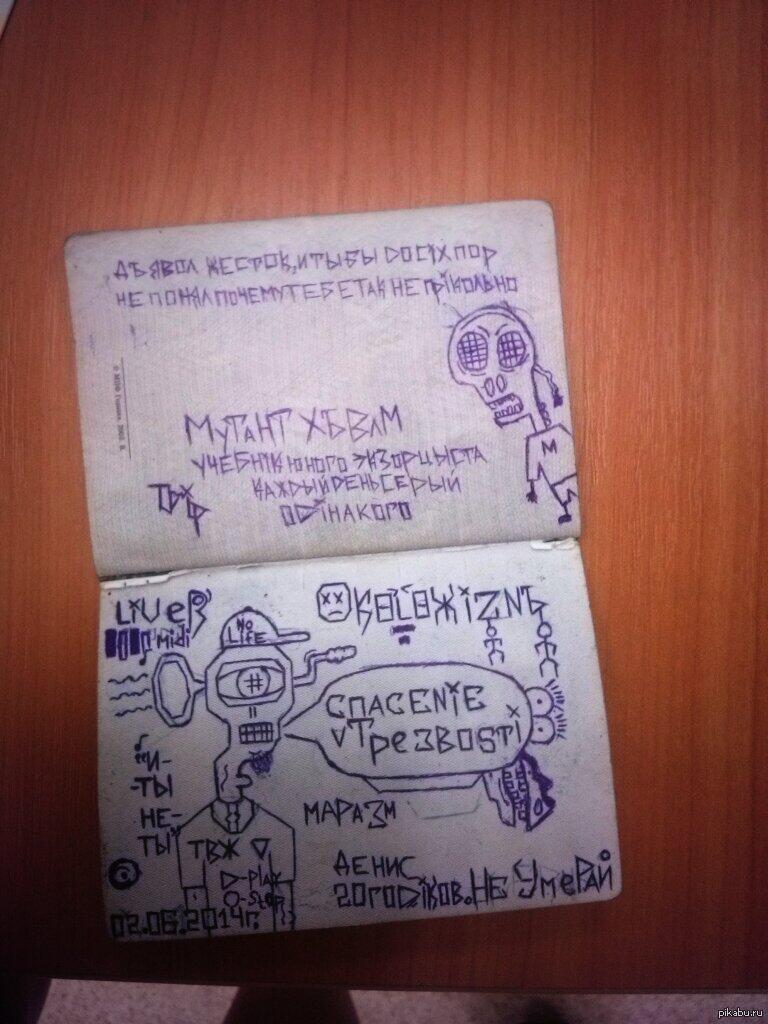 ДЬЯВОЛ ЖЕСТОК, И ТЫ БЫ DO СІХ ПОР
НЕ ПОНЯЛ ПОЧЕМУ ТЕБЕ ТАК НЕ ПРІКОЛЬНО
МУТАНТ ХЪВЛМ
УЧЕБНІК ЮНОГО ЭКЗОРЦЫСТА
КАЖДЫЙ DЕНЬ СЕРЫЙ
ОDІНАКОГО
M
LiVeR
Midi
NO
LiFE
OKOLOЖIZNЬ
#
СПАСЕNiE
v ТРеЗВОSTi
"И-
-ТЫ
НЕ-
ТЫ"
МАРАЗМ
ТВЖ
D-Play
O-Stop
ДЕНИС
20 ГОDIКОВ. НЕ УМеРАЙ
02.06.2014г.
pikabu.ru